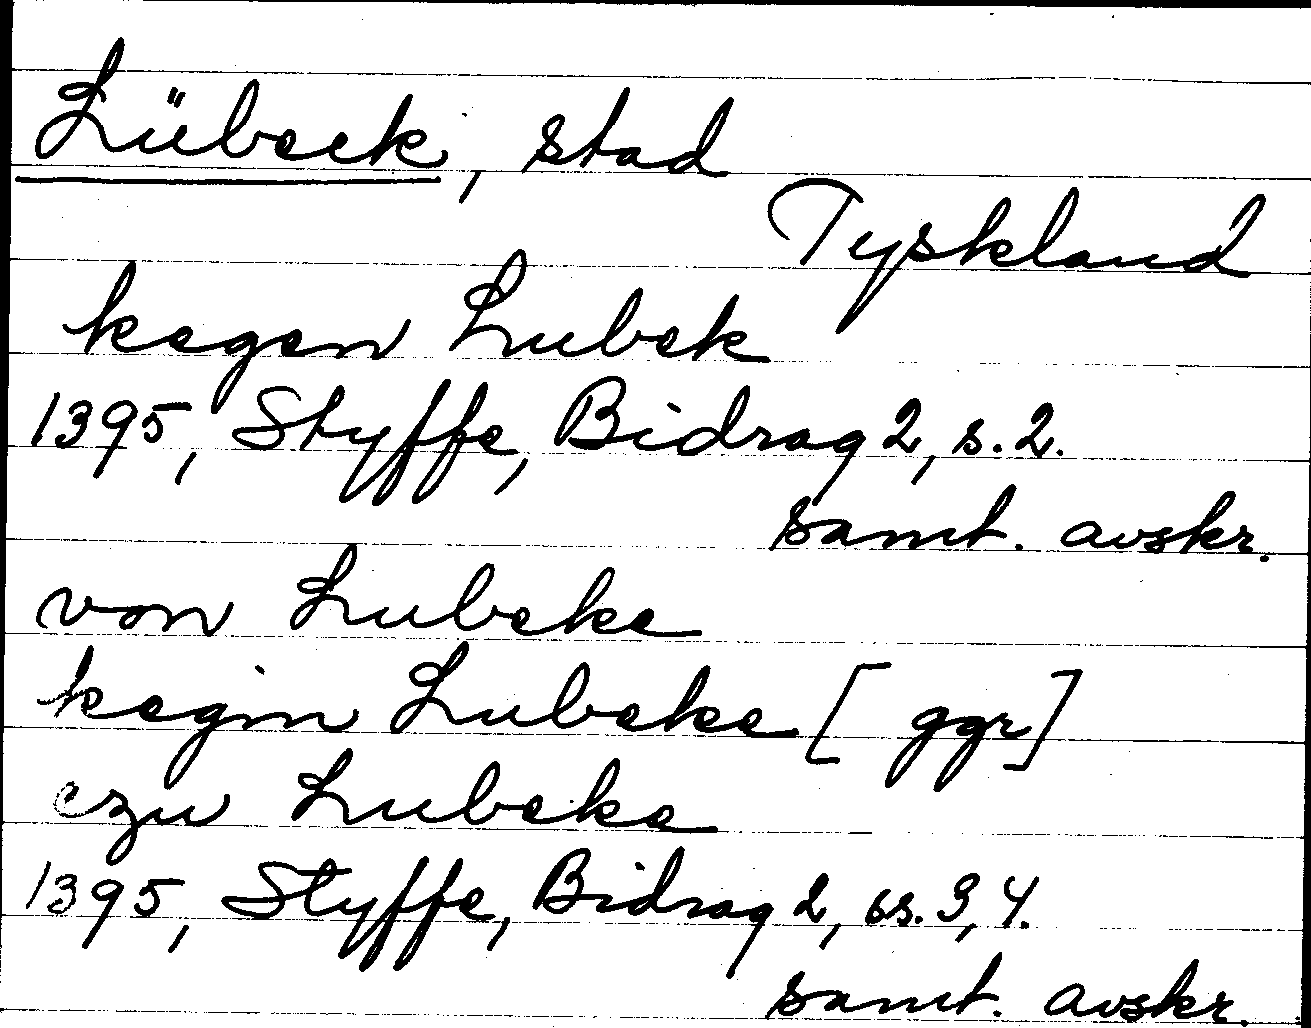 Lübeck, stad
Tyskland
kegen Lubek
1395, Styffe, Bidrag 2, s. 2.
samt. avskr.
von Lubeke
kegin Lubeke [ggr]
czu Lubeke
1395, Styffe, Bidrag 2, ss. 3, 4.
samt. avskr.